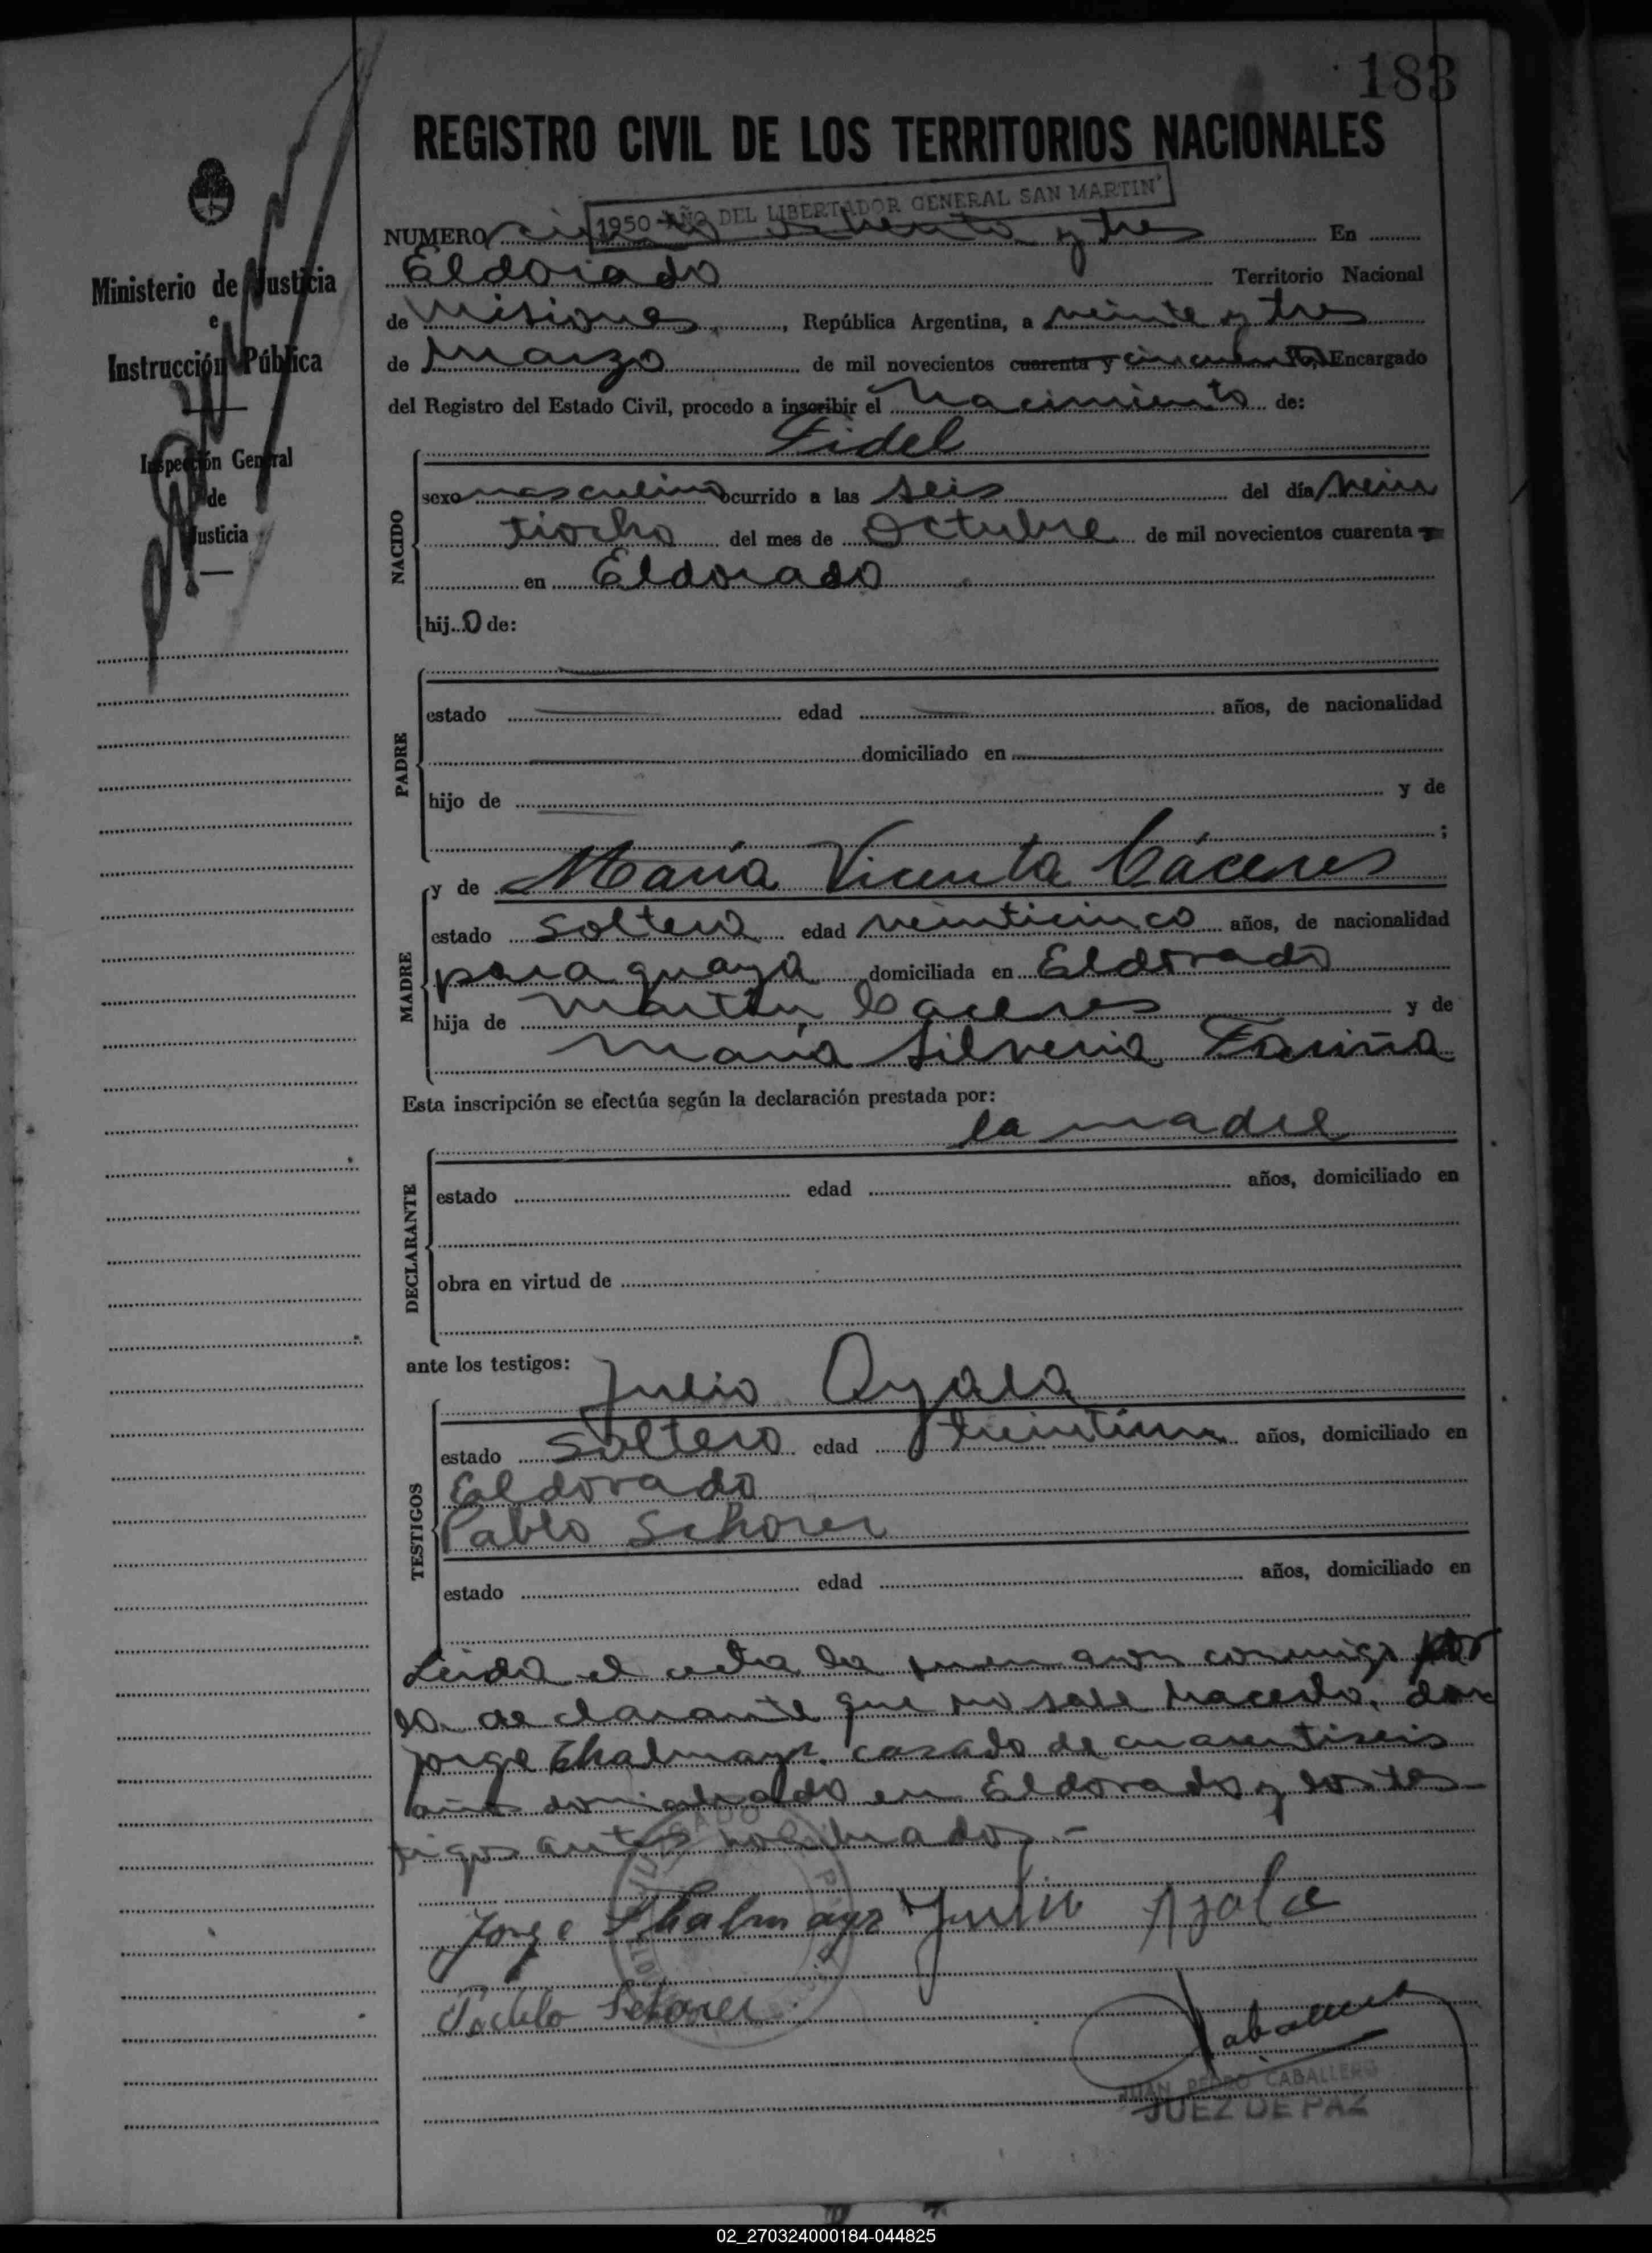 183
REGISTRO CIVIL DE LOS TERRITORIOS NACIONALES
1950 - AÑO DEL LIBERTADOR GENERAL SAN MARTIN"
NUMERO ciento ochenta y tres En
Eldorado Territorio Nacional
de Misiones, República Argentina, a veinte y tres
de Marzo de mil novecientos cuarenta y cincuenta Yo, Encargado
del Registro del Estado Civil, procedo a inscribir el nacimiento de:
Ministerio de Justicia
e
Instrucción Pública
Inspección General
de
Justicia
Fidel
NACIDO
sexo masculino ocurrido a las seis del día vein
tiocho del mes de Octubre de mil novecientos cuarenta y
en Eldorado
hijo de:
PADRE
estado edad años, de nacionalidad
domiciliado en
hijo de y de
;
MADRE
y de María Vicenta Cáceres
estado soltera edad veinticinco años, de nacionalidad
paraguaya domiciliada en Eldorado
hija de Martín Caceres y de
María Silveria Fariña
Esta inscripción se efectúa según la declaración prestada por:
la madre
DECLARANTE
estado edad años, domiciliado en
obra en virtud de
ante los testigos:
Julio Ayala
TESTIGOS
estado soltero edad años, domiciliado en
Eldorado
Pablo Schorer
estado edad años, domiciliado en
Leida el acta la firman con conmigo por
la declarante que no sabe hacerlo, don
Jorge Thalmayr casado de cuarentiseis
años domiciliado en Eldorado y los tes
tigos antes nombrados.-
Jorge Thalmayr Julio Ayala
Pablo Schorer
Caballero
JUAN PEDRO CABALLERO
JUEZ DE PAZ
02_270324000184-044825